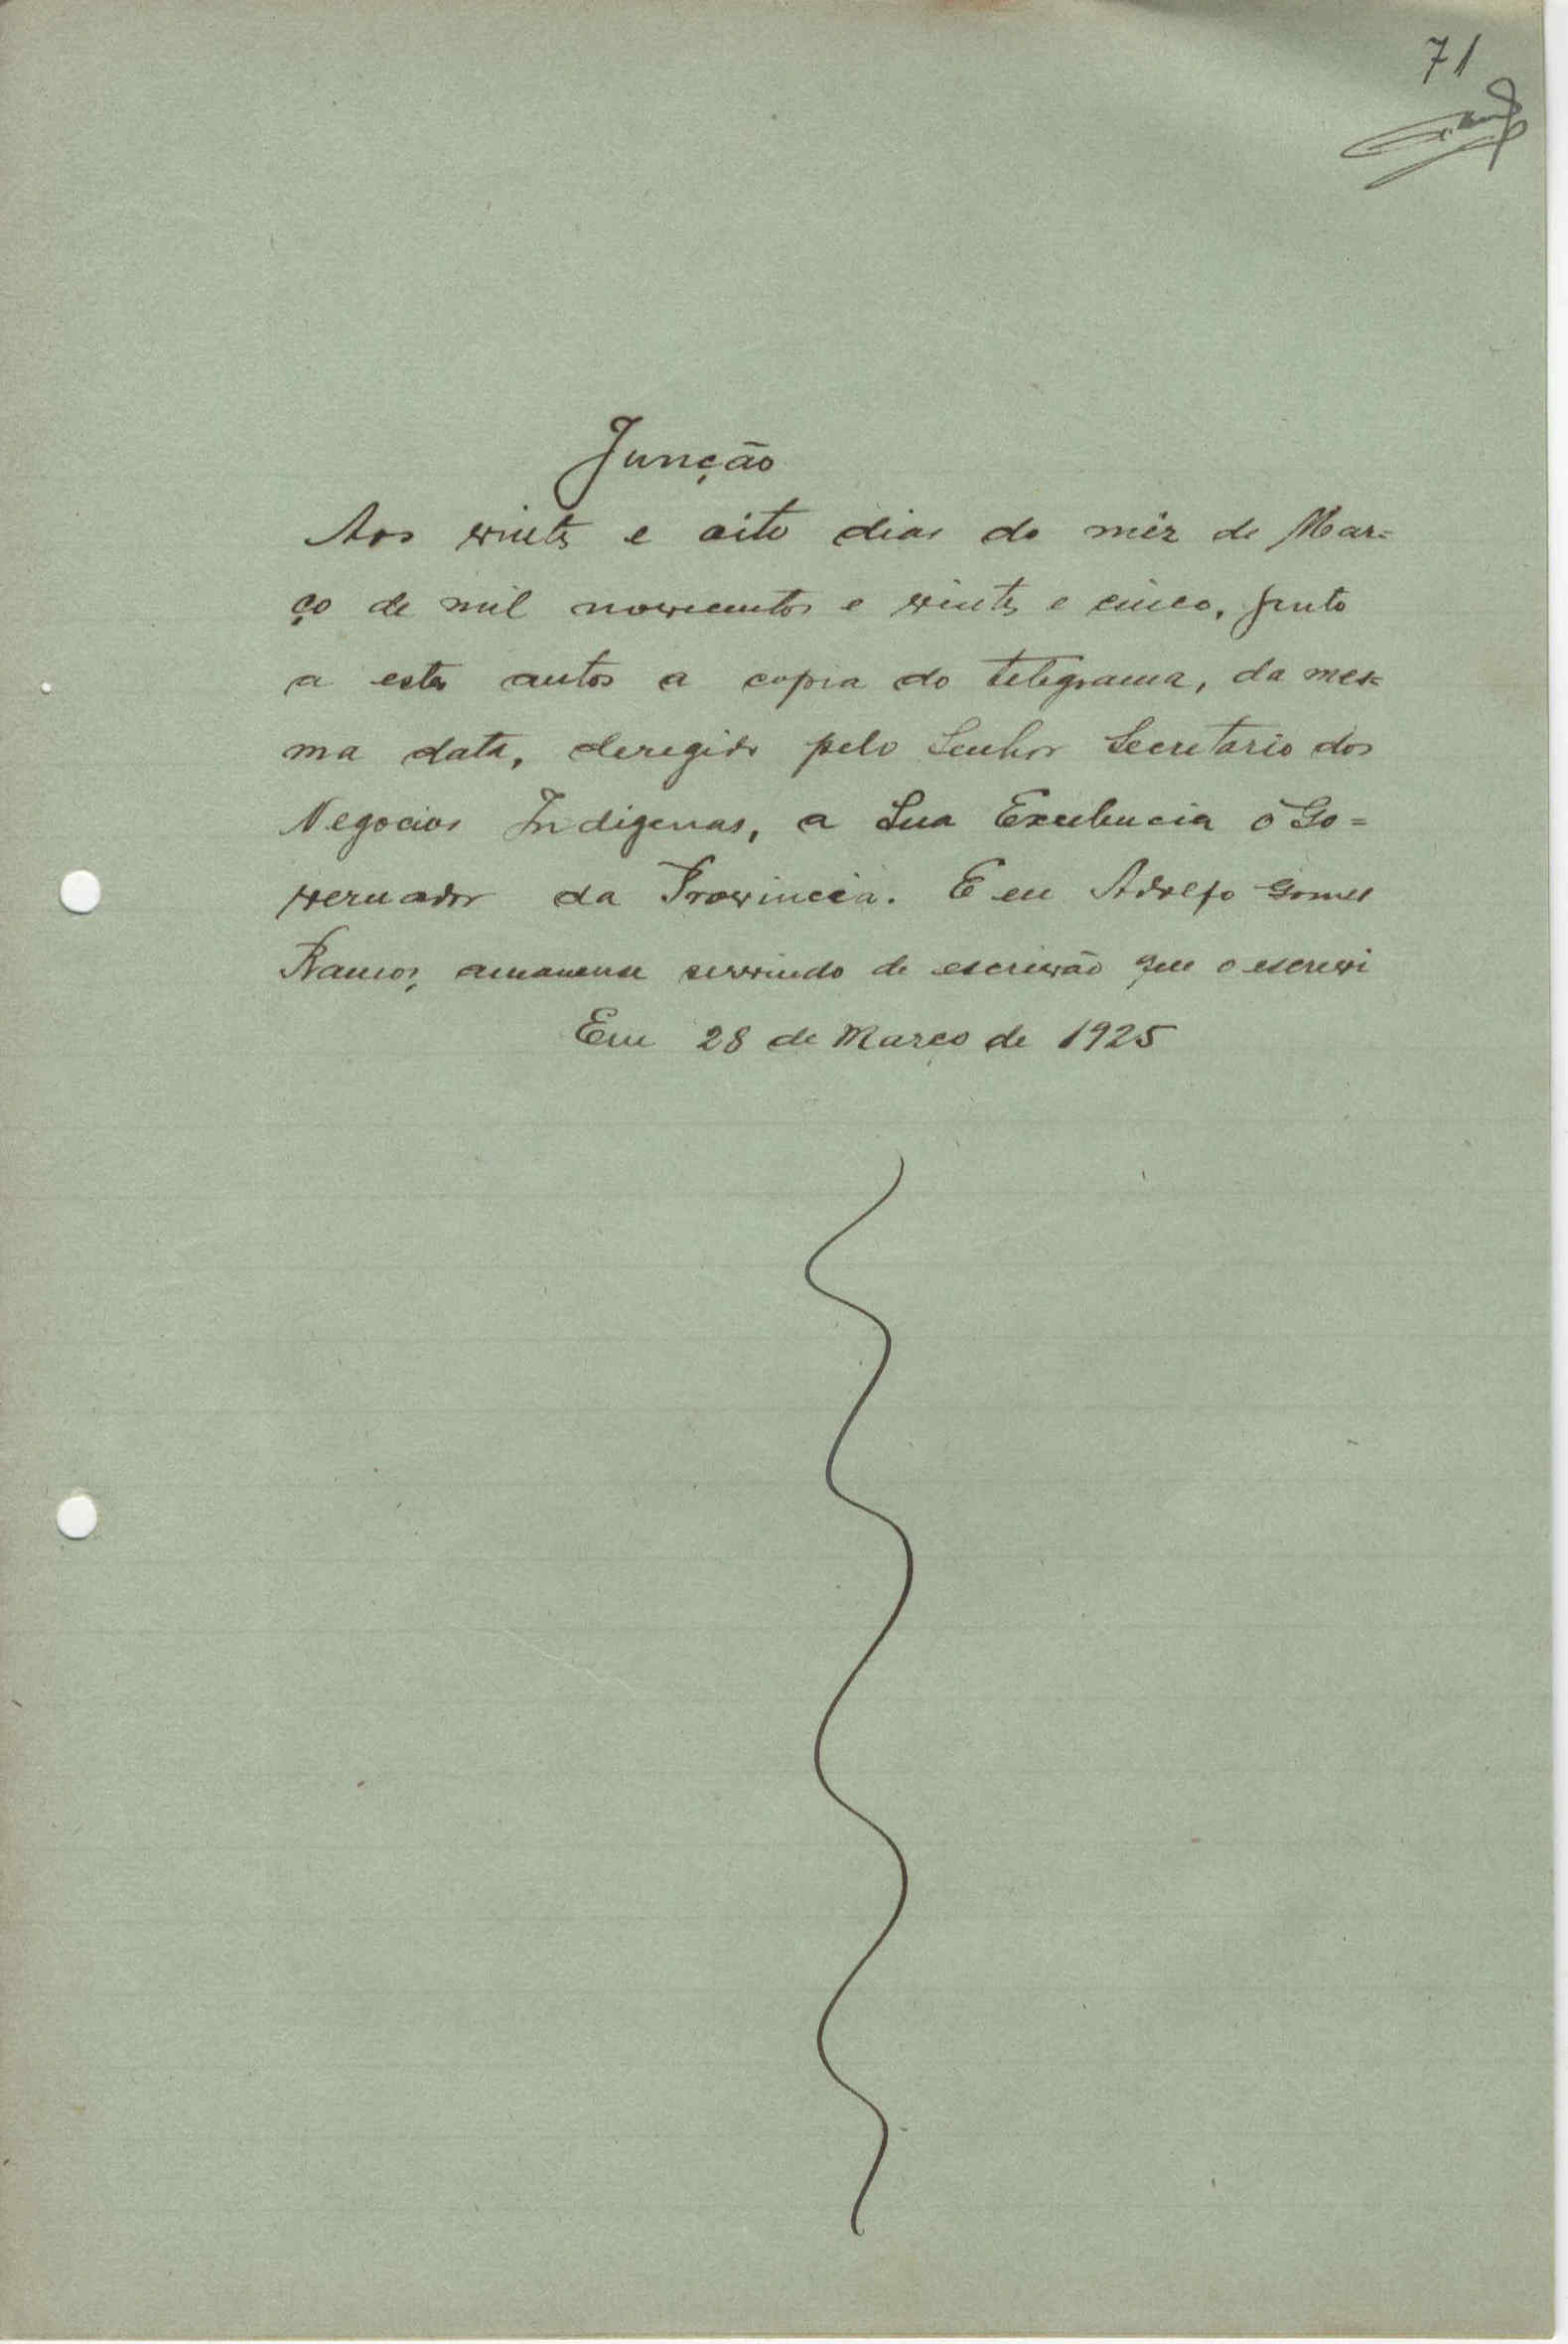 71
Junção
Aos vinte e oito dias do mêz de Mar=
ço de mil novecentos e vinte e cinco, junto
a estes autos a copia do telegrama, da mes=
ma data, deregido pelo Senhor Secretario dos
Negocios Indigenas, a Sua Excelencia o Go=
vernador da Provincia. E eu Adolfo Gomes
Ramos, amanuense servindo de escrivão que o escrevi
Em 28 de Março de 1925